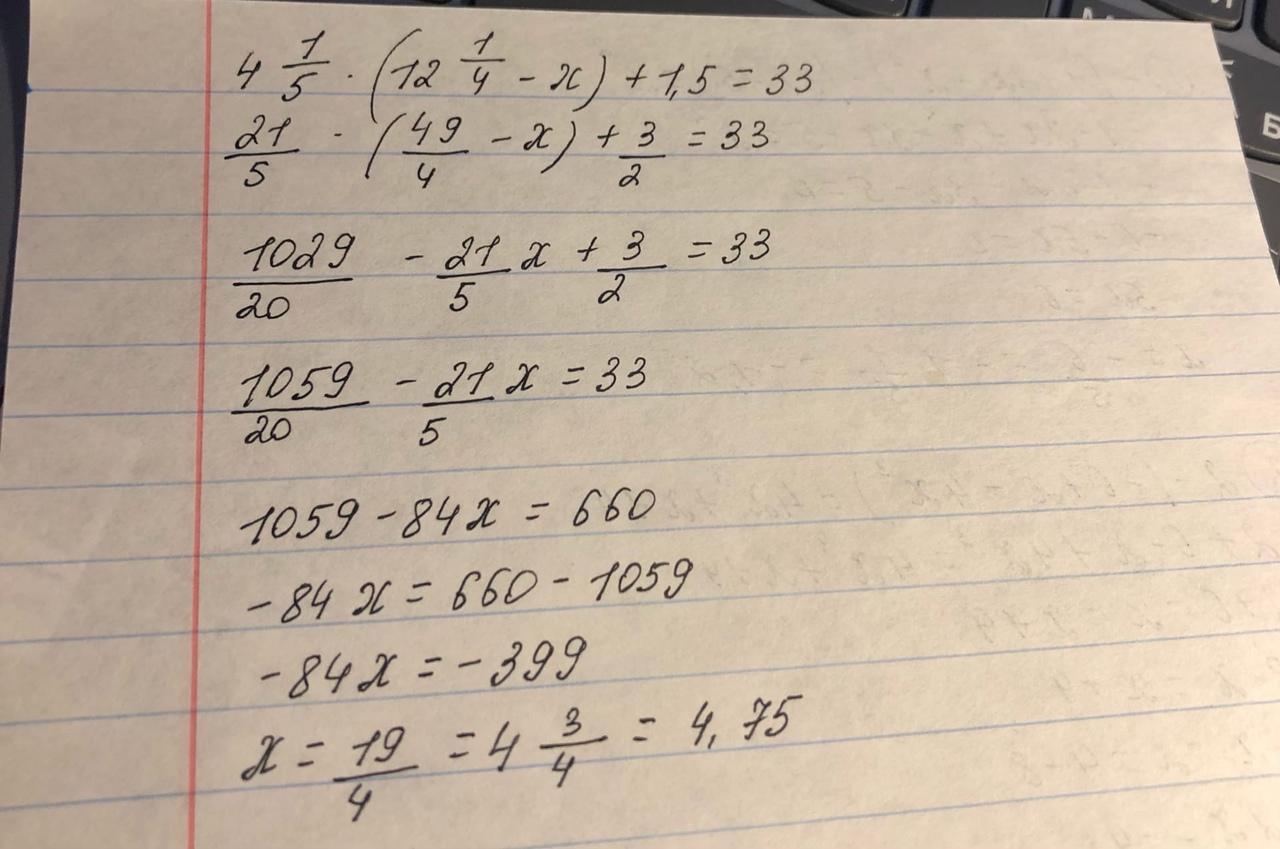 4 1/5 · (12 1/4 - x) + 1,5 = 33
21/5 · (49/4 - x) + 3/2 = 33
1029/20 - 21/5 x + 3/2 = 33
1059/20 - 21/5 x = 33
1059 - 84x = 660
-84x = 660 - 1059
-84x = -399
x = 19/4 = 4 3/4 = 4,75